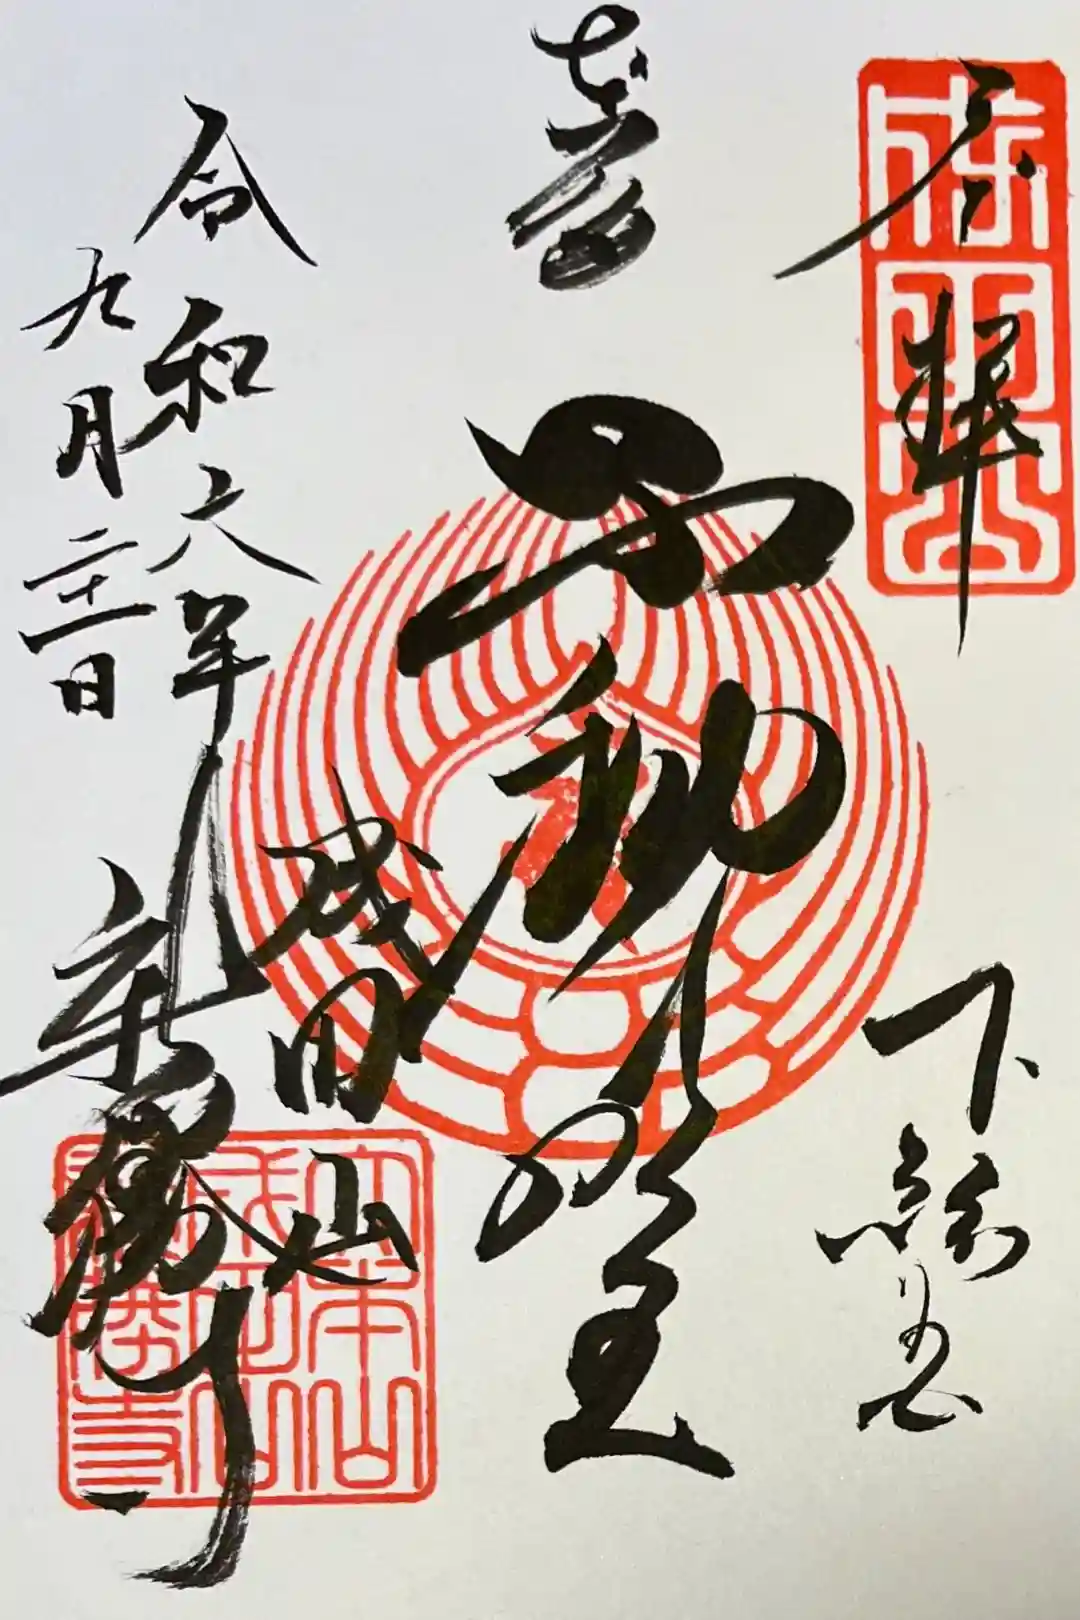 成田山
参拝
下総
不動明王
成田山
新勝寺
令和六年
九月二十一日
大本山
成田山
新勝寺